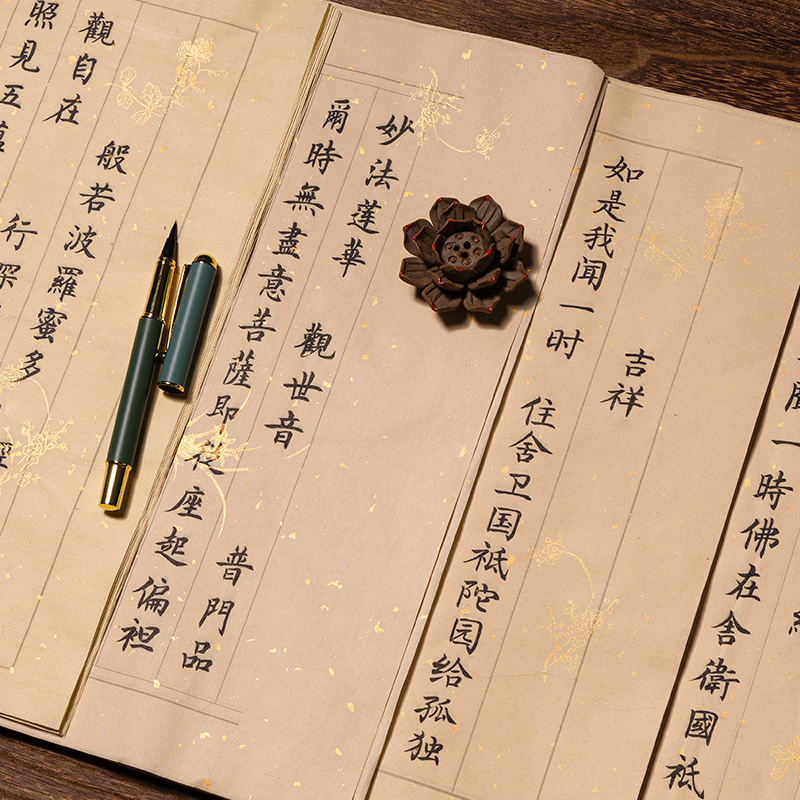 一時佛在舍衛國祇
吉祥
如是我闻一时 住舍卫国祗陀园给孤独
妙法蓮華 觀世音 普門品
爾時無盡意菩薩即從座起偏袒
般若波羅蜜多
觀自在 行深
照見五